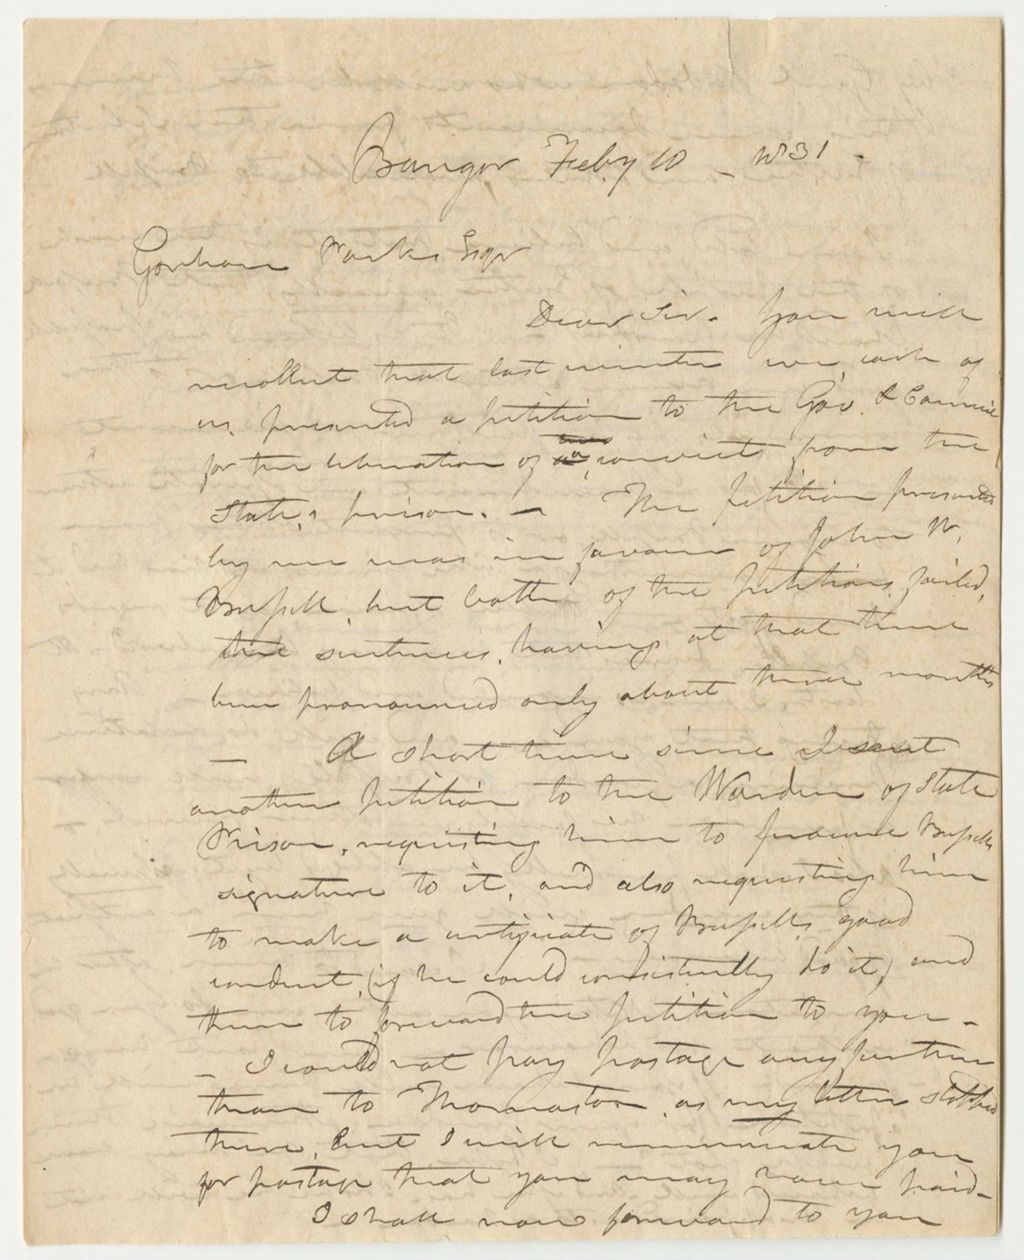 Bangor Feby 10 - 1831 -
Gorham Parks Esqr
Dear Sir. You will
recollect that last winter we, each of
us, presented a petition to the Gov. & Council
for the liberation of a convict from the
State's prison. - The Petition presented
by me was in favour of John W.
Bussell, but both of the petitions failed,
their sentences, having at that time
been pronounced only about three months
- A short time since I sent
another petition to the Warden of State
Prison, requesting him to procure Bussells
signature to it, and also requesting him
to make a certificate of Bussells good
conduct, (if he could consistently do it,) and
then to forward the petition to you -
- I could not pay postage any further
than to Thomaston, as my letter stopped
there, but I will remunerate you
for postage that you may have paid -
I shall now forward to you